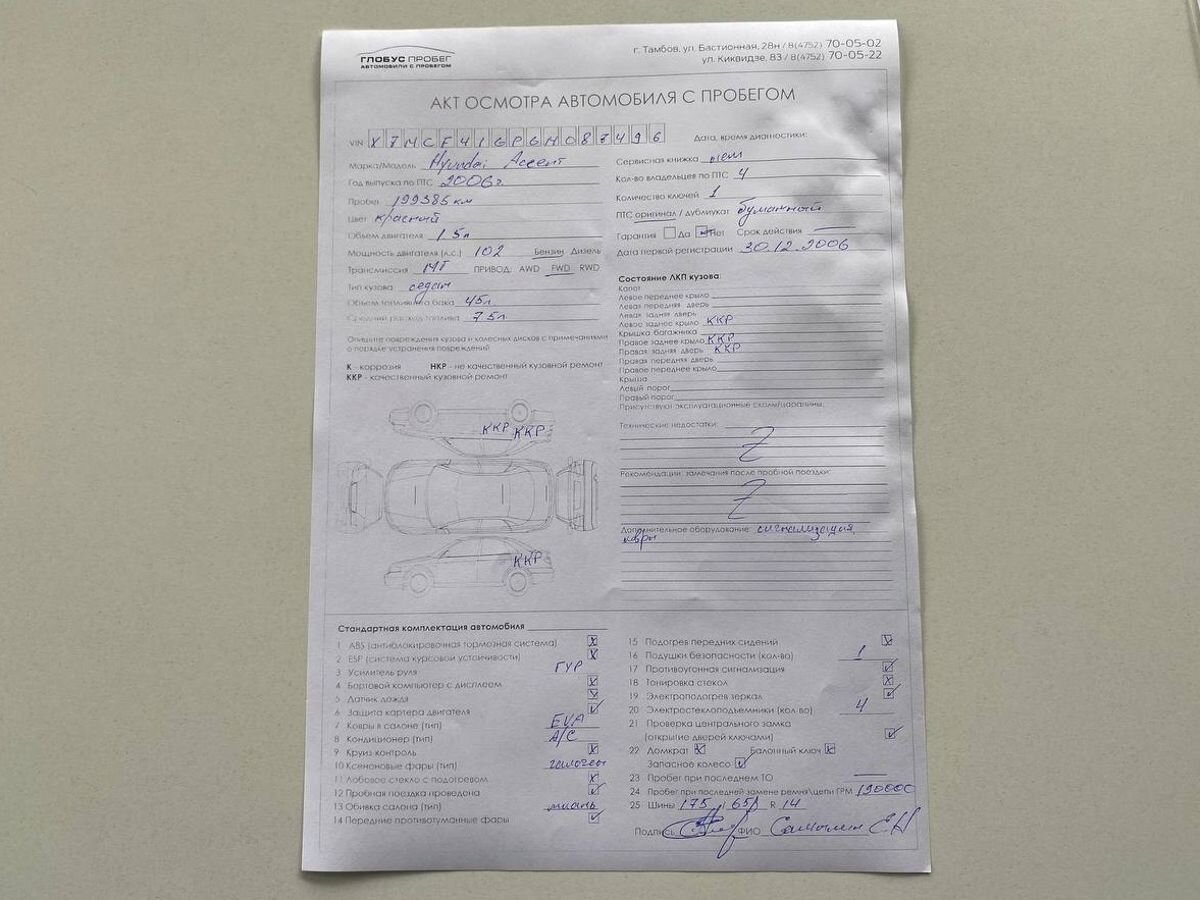 ГЛОБУС ПРОБЕГ
АВТОМОБИЛИ С ПРОБЕГОМ
г. Тамбов, ул. Бастионная, 28н / 8(4752) 70-05-02
ул. Киквидзе, 83 / 8(4752) 70-05-22
АКТ ОСМОТРА АВТОМОБИЛЯ С ПРОБЕГОМ
VIN X7MCF41GP6M087496
Марка/Модель Hyundai Accent
Год выпуска по ПТС 2006г
Пробег 199385 км
Цвет красный
Объем двигателя 1.5л
Мощность двигателя (л.с.) 102 Бензин Дизель
Трансмиссия МТ ПРИВОД: AWD FWD RWD
Тип кузова седан
Объем топливного бака 45л
Средний расход топлива 7.5л
Дата, время диагностики:
Сервисная книжка нет
Кол-во владельцев по ПТС 4
Количество ключей 1
ПТС оригинал / дубликат бумажный
Гарантия Да Нет Срок действия
Дата первой регистрации 30.12.2006
Опишите повреждения кузова и колесных дисков с примечаниями
о порядке устранения повреждений
К - коррозия НКР - не качественный кузовной ремонт
ККР - качественный кузовной ремонт
ККР ККР
ККР
Состояние ЛКП кузова:
Капот
Левое переднее крыло
Левая передняя дверь
Левая задняя дверь
Левое заднее крыло ККР
Крышка багажника
Правое заднее крыло ККР
Правая задняя дверь ККР
Правая передняя дверь
Правое переднее крыло
Крыша
Левый порог
Правый порог
Присутствуют эксплуатационные сколы/царапины.
Технические недостатки: Z
Рекомендации, замечания после пробной поездки: Z
Дополнительное оборудование: сигнализация,
ковры
Стандартная комплектация автомобиля
1 ABS (антиблокировочная тормозная система)
2 ESP (система курсовой устойчивости)
3 Усилитель руля ГУР
4 Бортовой компьютер с дисплеем
5 Датчик дождя
6 Защита картера двигателя
7 Ковры в салоне (тип) EVA
8 Кондиционер (тип) A/C
9 Круиз-контроль
10 Ксеноновые фары (тип) галоген
11 Лобовое стекло с подогревом
12 Пробная поездка проведена
13 Обивка салона (тип) ткань
14 Передние противотуманные фары
15 Подогрев передних сидений
16 Подушки безопасности (кол-во) 1
17 Противоугонная сигнализация
18 Тонировка стекол
19 Электроподогрев зеркал
20 Электростеклоподъемники (кол-во) 4
21 Проверка центрального замка
(открытие дверей ключами)
22 Домкрат Балонный ключ
Запасное колесо
23 Пробег при последнем ТО
24 Пробег при последней замене ремня\цепи ГРМ 190000
25 Шины 175 / 65 R 14
Подпись ФИО